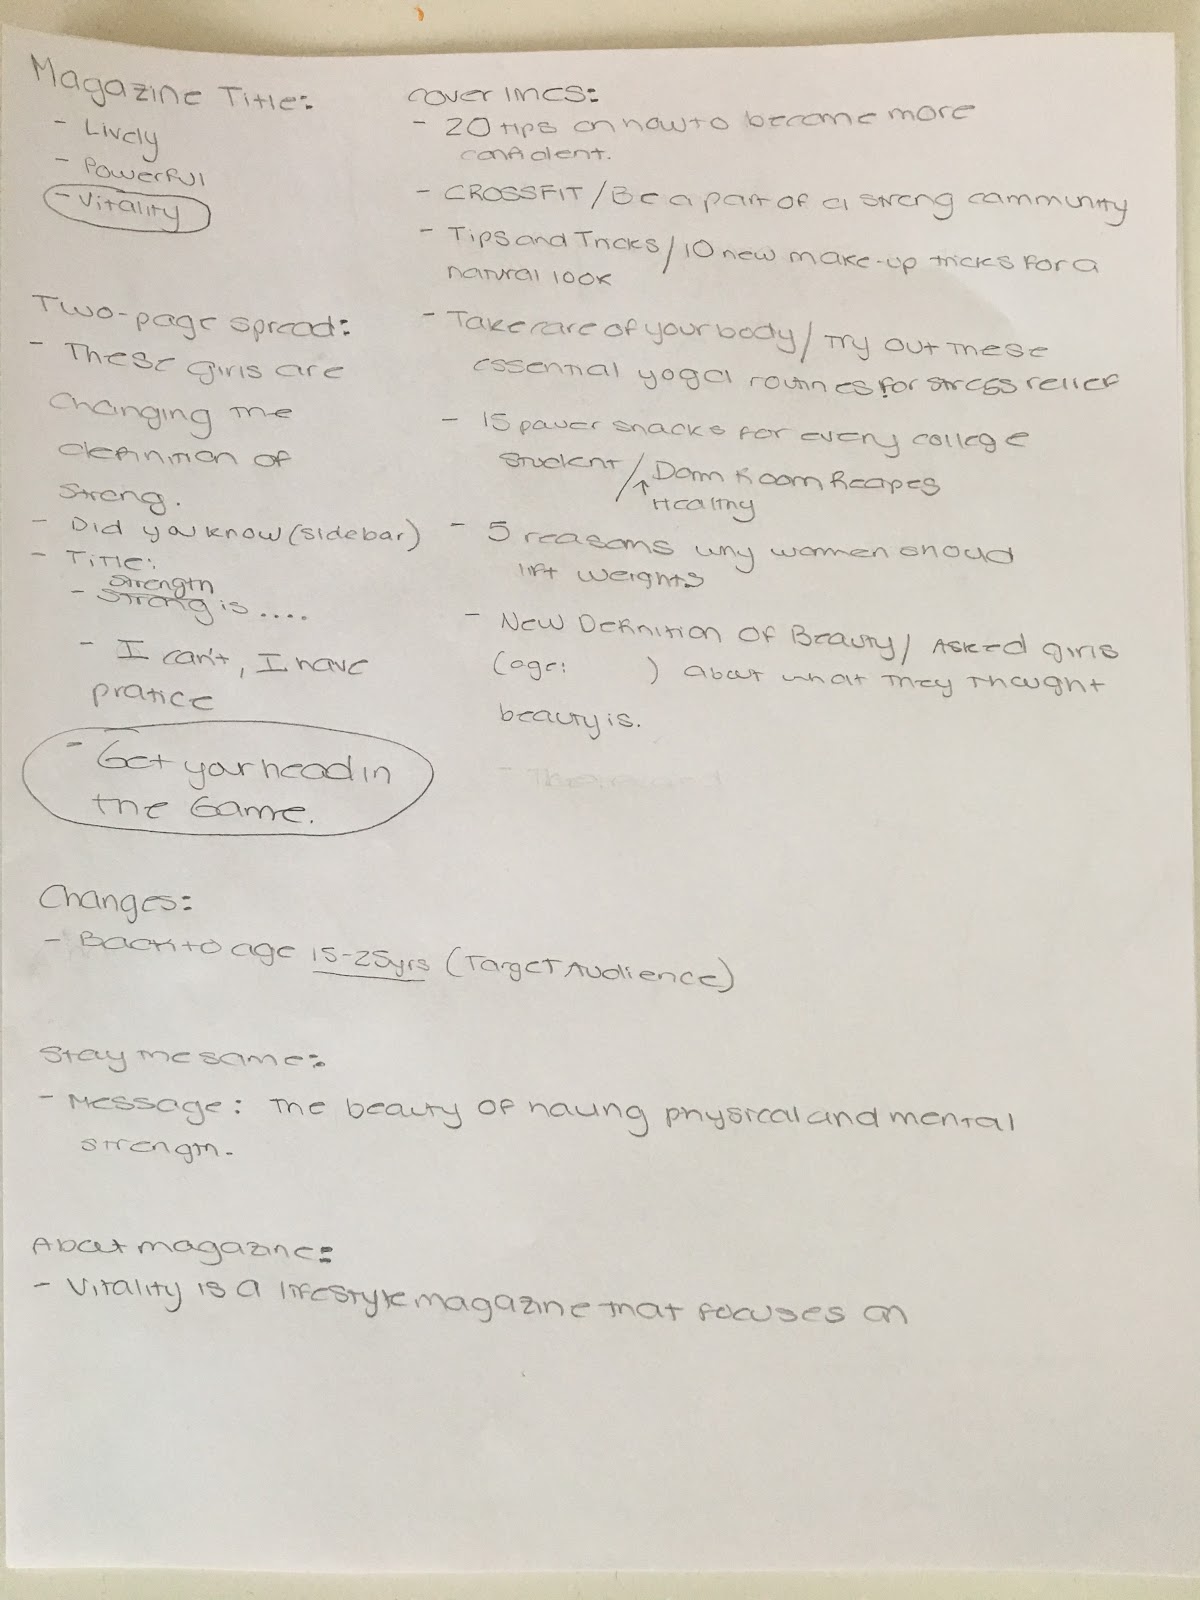 Magazine Title:
- Lively
- Powerful
- Vitality
Two-page spread:
- These girls are
changing the
definition of
strong.
- Did you know (sidebar)
- Title:
strength
- Strong is ....
- I can't, I have
pratice
- Get your head in
the Game.
cover lines:
- 20 tips on how to become more
confident.
- CROSSFIT / Be a part of a strong community
- Tips and Tricks / 10 new make-up tricks for a
natural look
- Take care of your body / Try out these
essential yoga routines for stress relief
- 15 power snacks for every college
student / Dorm Room Recipes
Healthy
- 5 reasons why women should
lift weights
- New Definition of Beauty / Asked girls
(age: ) about what they thought
beauty is.
Changes:
- Back to age 15-25yrs (Target Audience)
Stay the same:
- Message: The beauty of having physical and mental
strength.
About magazine:
- Vitality is a lifestyle magazine that focuses on